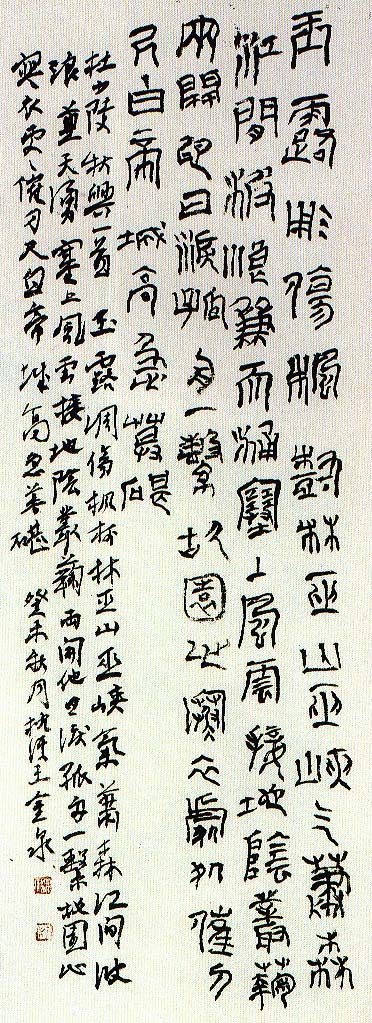 玉露凋傷楓樹林巫山巫峽气蕭森
江間波浪兼天涌塞上風雲接地陰叢菊
兩開他日淚孤舟一繫故園心寒衣處處催刀
尺白帝城高急暮砧
杜少陵秋興一首 玉露凋傷楓樹林巫山巫峽氣蕭森江間波
浪兼天湧塞上風雲接地陰叢菊兩開他日淚孤舟一繫故園心
寒衣處處催刀尺白帝城高急暮碪 癸未秋月王金泉